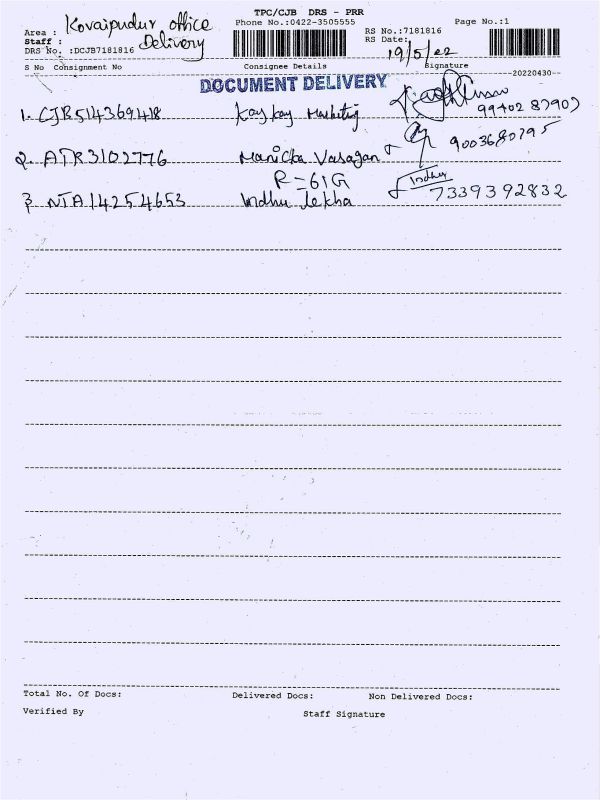 TPC/CJB DRS - PRR
Area : Kovaipudur office
Phone No.:0422-3505555
Page No.:1
Staff : Delivery
RS No.:7181816
DRS No. :DCJB7181816
RS Date: 19/5/22
S No Consignment No Consignee Details Signature
20220430
DOCUMENT DELIVERY
1. CJB514369418 Kay kay Marketing
99402 87909
2. ATR3102776 Manicka Vasagan 9003680795
R=61G
Indhu
3 NTA14254653 Indhu lekha 7339392832
Total No. Of Docs: Delivered Docs: Non Delivered Docs:
Verified By Staff Signature